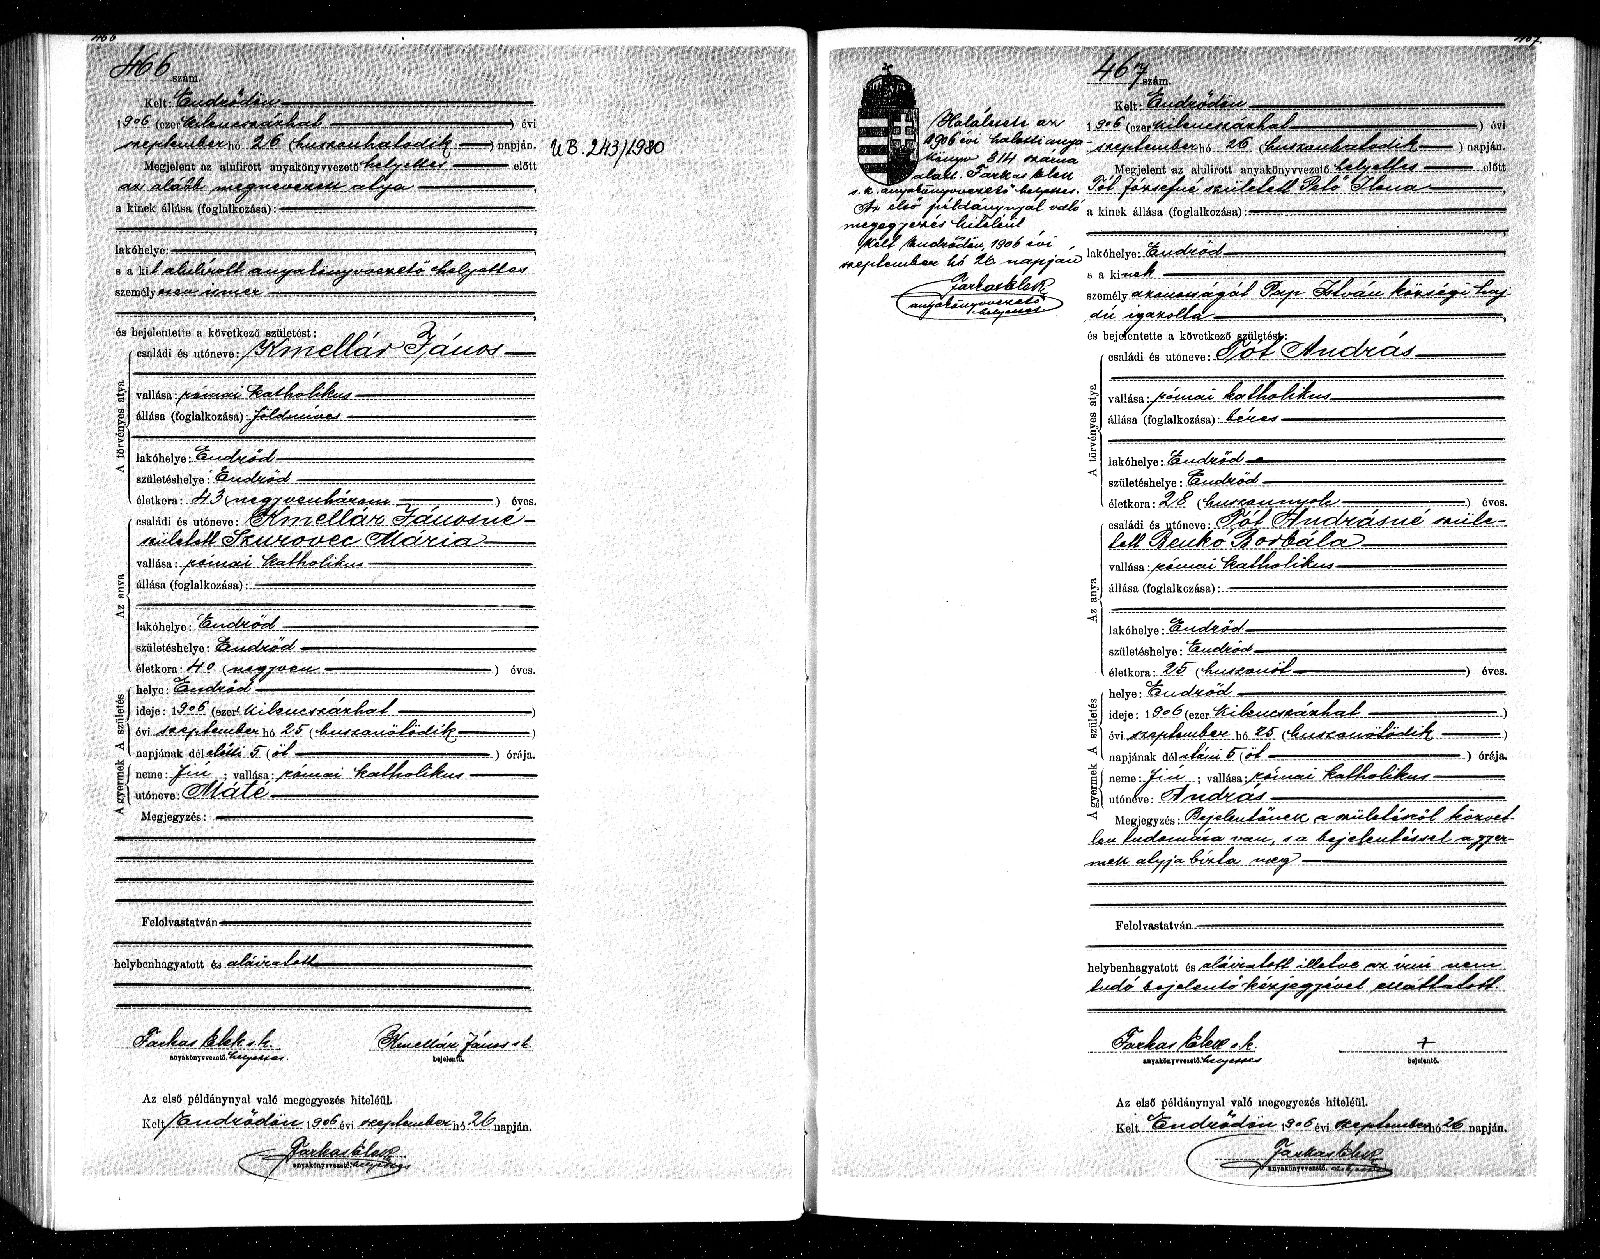 466
466 szám.
Kelt: Endrődön
1906 (ezer kilencszázhat ) évi
szeptember hó 26 (huszonhatodik ) napján.
Megjelent az alulirott anyakönyvvezető helyettes előtt
az alább megnevezett atya
a kinek állása (foglalkozása):
lakóhelye:
s a kit alulirott anyakönyvvezető helyettes
személyesen ismer
és bejelentette a következő születést:
A törvényes atya
családi és utóneve: Kmellár János
vallása: római katholikus
állása (foglalkozása): földmüves
lakóhelye: Endrőd
születéshelye: Endrőd
életkora: 43 (negyvenhárom ) éves.
Az anya
családi és utóneve: Kmellár Jánosné
született Szurovec Mária
vallása: római katholikus
állása (foglalkozása):
lakóhelye: Endrőd
születéshelye: Endrőd
életkora: 40 (negyven ) éves.
A születés
helye: Endrőd
ideje: 1906 (ezer kilencszázhat )
évi szeptember hó 25 (huszonötödik )
napjának délelőtti 5 (öt ) órája.
A gyermek
neme: fiú ; vallása: római katholikus
utóneve: Máté
Megjegyzés:
Felolvastatván
helybenhagyatott és aláiratott
Farkas Elek s.k. Kmellár János s.k.
anyakönyvvezető helyettes bejelentő.
Az első példánynyal való megegyezés hiteléül.
Kelt Endrődön 1906 évi szeptember hó 26 napján.
Farkas Elek
anyakönyvvezető helyettes
UB. 243/1980
467.
467 szám.
Haláleseti az
1906 évi halotti anya
könyv 314 száma
alatt. Farkas Elek
s.k. anyakönyvvezető helyettes.
Az első példánynyal való
megegyezés hiteléül
Kelt Endrődön, 1906 évi
szeptember hó 26 napján
Farkas Elek
anyakönyvvezető
helyettes
Kelt: Endrődön
1906 (ezer kilencszázhat ) évi
szeptember hó 26 (huszonhatodik ) napján.
Megjelent az alulirott anyakönyvvezető helyettes előtt
Tót Józsefné született Pető Ilona
a kinek állása (foglalkozása):
lakóhelye: Endrőd
s a kinek
személyazonosságát Pap István községi haj
dú igazolta
és bejelentette a következő születést:
A törvényes atya
családi és utóneve: Tót András
vallása: római katholikus
állása (foglalkozása): béres
lakóhelye: Endrőd
születéshelye: Endrőd
életkora: 28 (huszonnyolc ) éves.
Az anya
családi és utóneve: Tót Andrásné szüle-
tett Benkó Borbála
vallása: római katholikus
állása (foglalkozása):
lakóhelye: Endrőd
születéshelye: Endrőd
életkora: 25 (huszonöt ) éves.
A születés
helye: Endrőd
ideje: 1906 (ezer kilencszázhat )
évi szeptember hó 25 (huszonötödik )
napjának délutáni 5 (öt ) órája.
A gyermek
neme: fiú ; vallása: római katholikus
utóneve: András
Megjegyzés: Bejelentőnek a születésről közvet
len tudomása van, s a bejelentéssel a gyer-
mek atyja bízta meg
Felolvastatván
helybenhagyatott és aláiratott illetve az írni nem
tudó bejelentő kézjegyével elláttatott
Farkas Elek s.k. +
anyakönyvvezető helyettes bejelentő.
Az első példánynyal való megegyezés hiteléül.
Kelt Endrődön 1906 évi szeptember hó 26 napján.
Farkas Elek
anyakönyvvezető